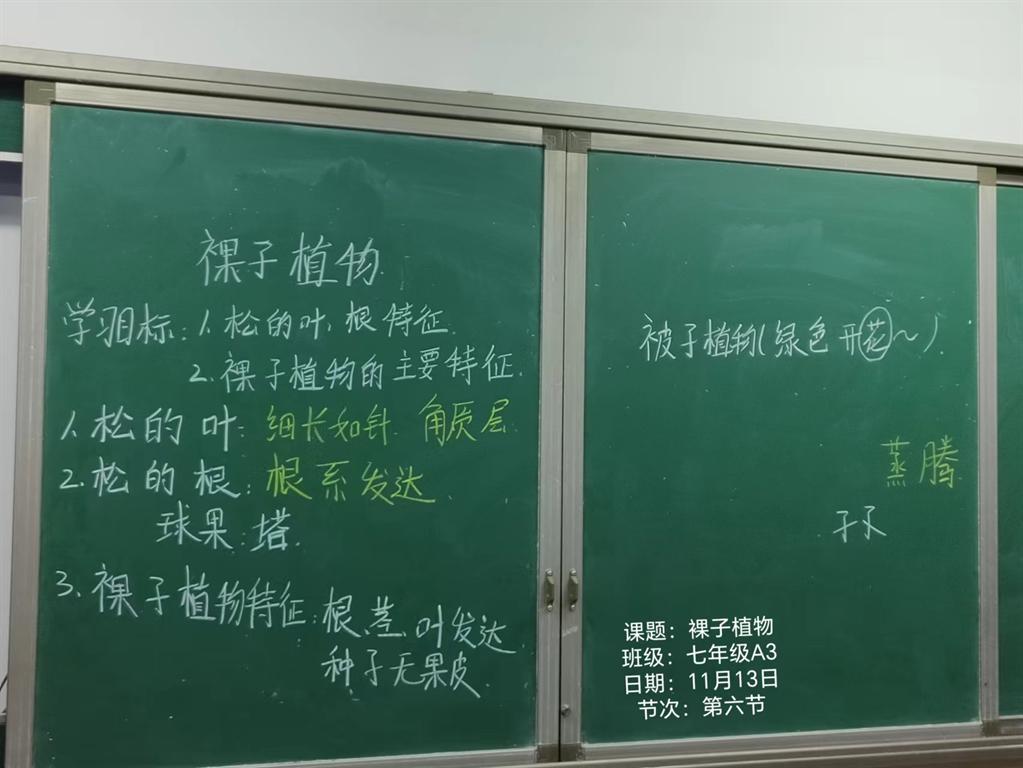 裸子植物
学习目标:1.松的叶、根特征
2.裸子植物的主要特征.
1.松的叶:细长如针 角质层
2.松的根:根系发达.
球果:塔.
3.裸子植物特征:根、茎、叶发达
种子无果皮.
被子植物(绿色开花~)
蒸腾
课题:裸子植物
班级:七年级A3
日期:11月13日
节次:第六节